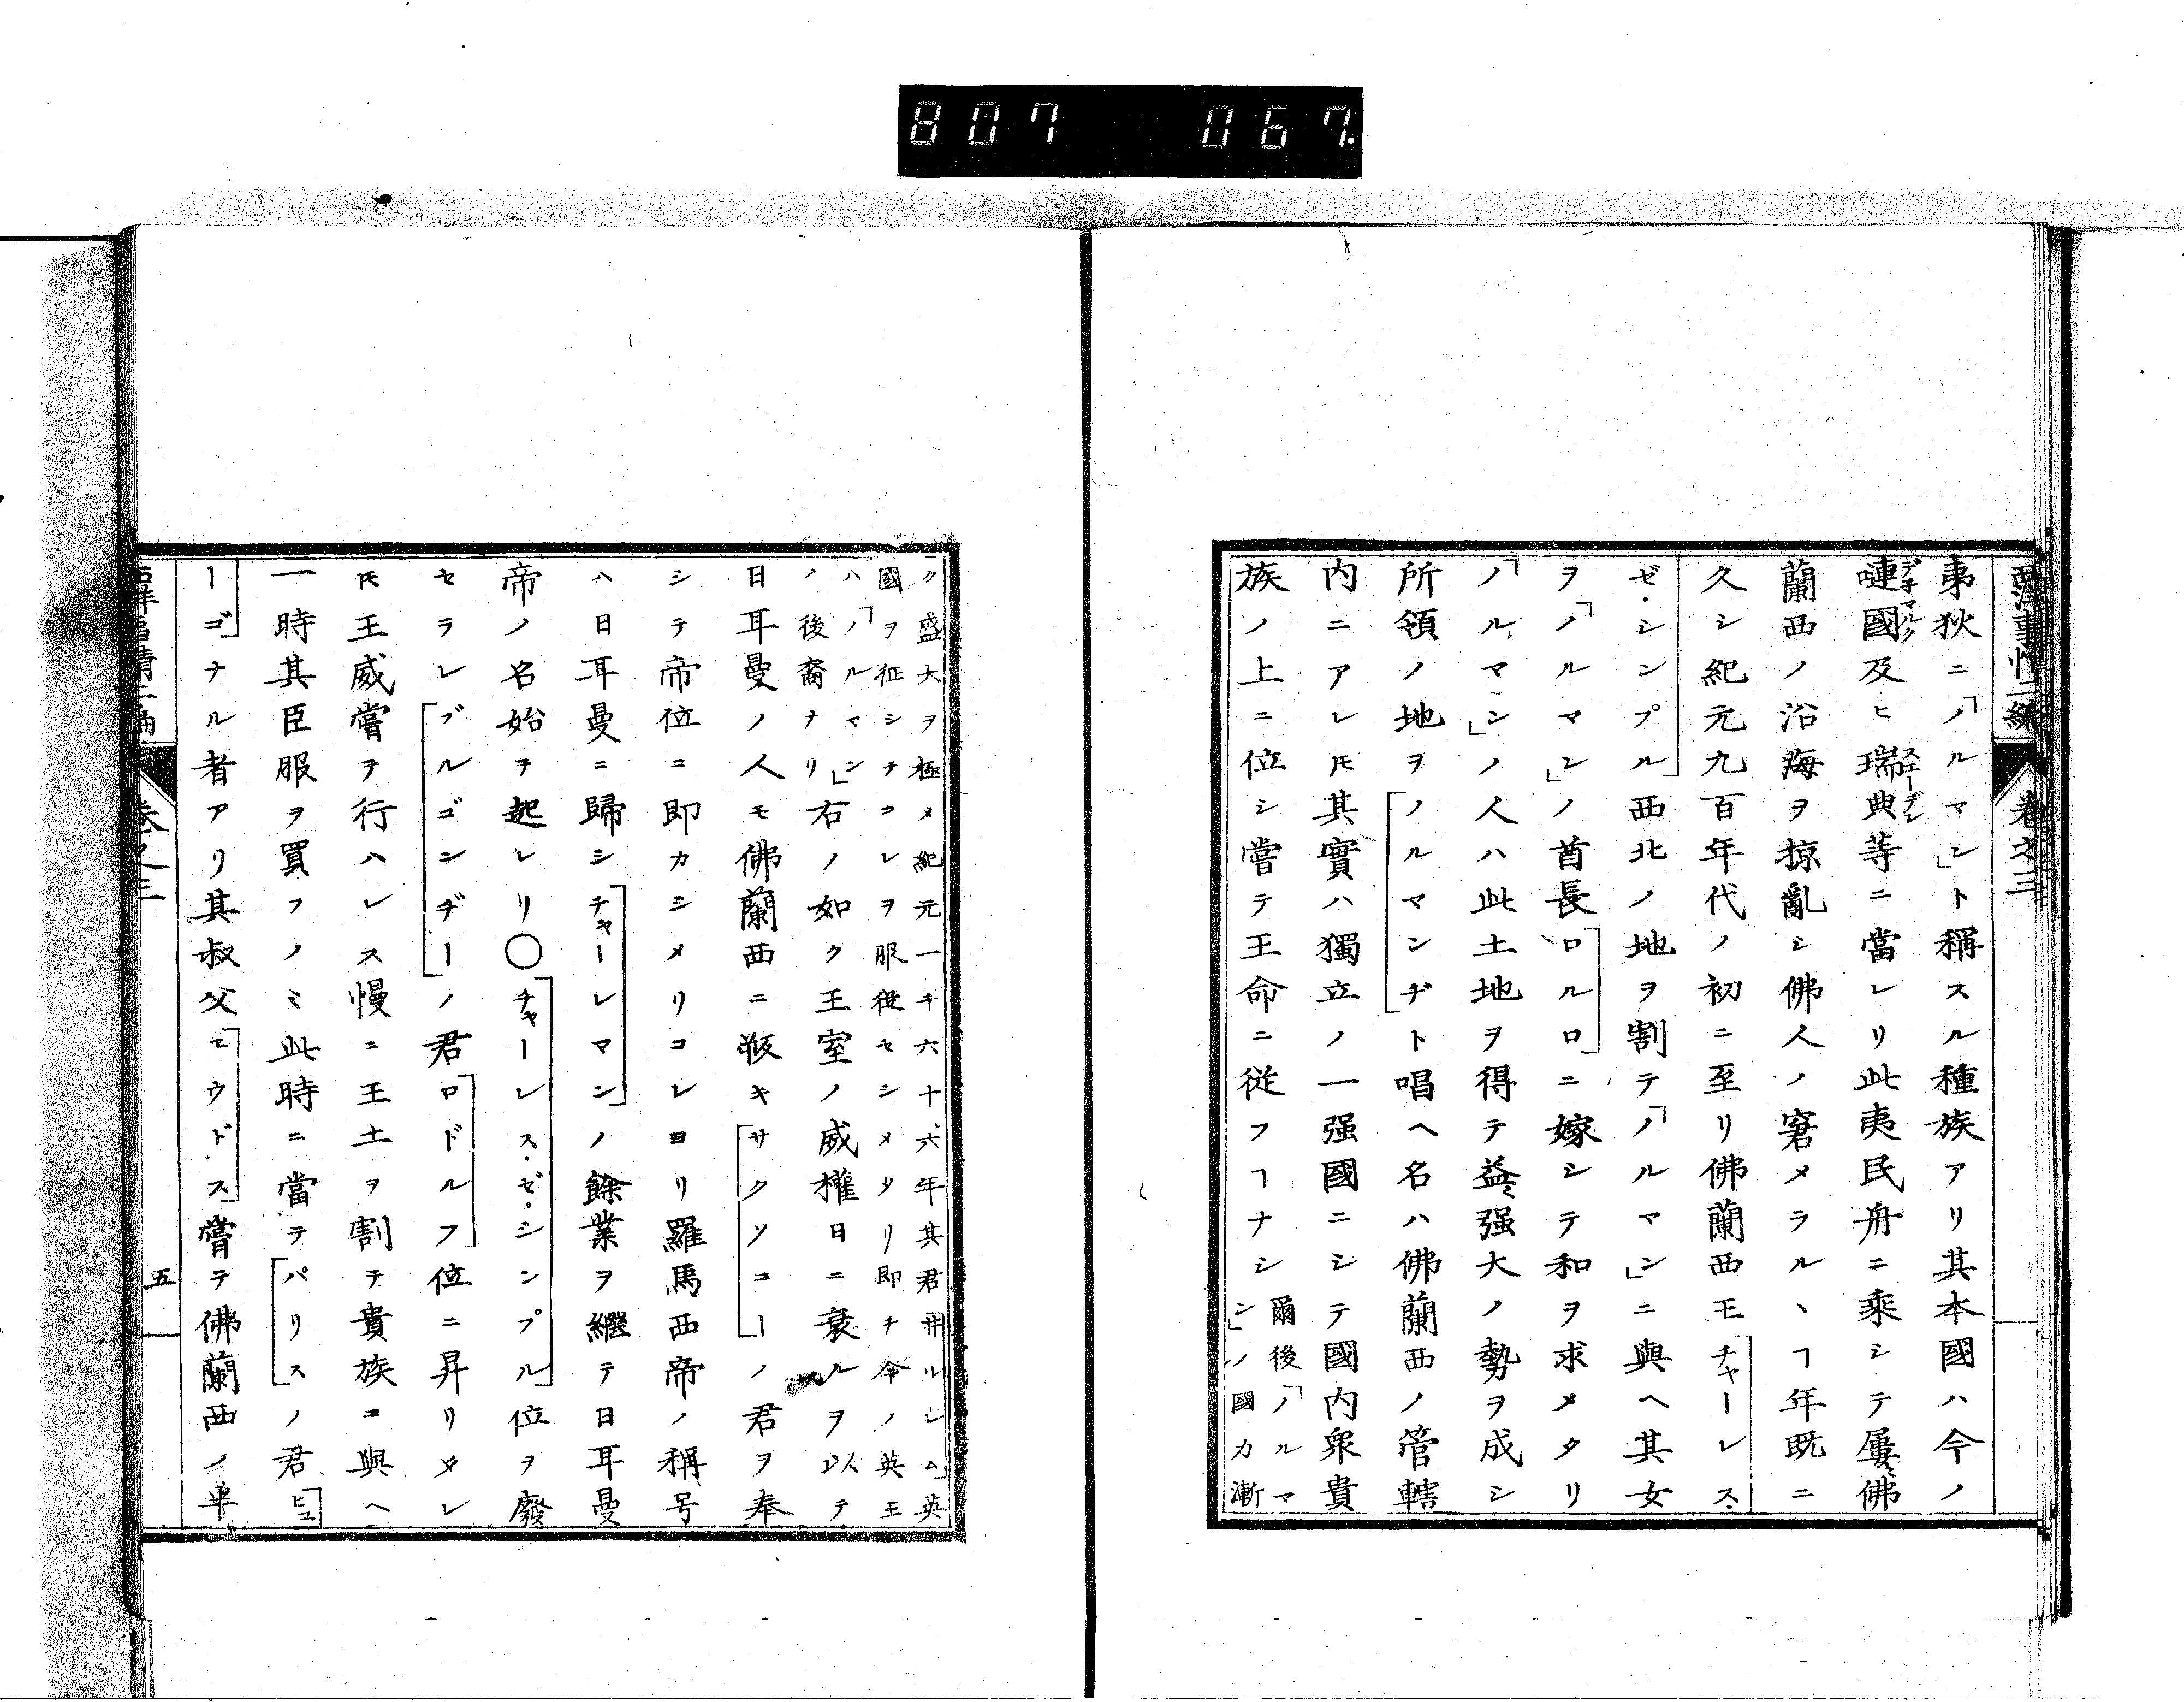 807 067.
西洋事情二編 卷之三
夷狄ニ「ノルマン」ト稱スル種族アリ其本國ハ今ノ
嗹國及ヒ瑞典等ニ當レリ此夷民舟ニ乘シテ屢〻佛
デネマルク スエーデン
蘭西ノ沿海ヲ掠亂シ佛人ノ窘メラルヽヿ年既ニ
久シ紀元九百年代ノ初ニ至リ佛蘭西王チャーレス・
ゼ・シンプル西北ノ地ヲ割テ「ノルマン」ニ與ヘ其女
ヲ「ノルマン」ノ酋長ロルロニ嫁シテ和ヲ求メタリ
「ノルマン」ノ人ハ此土地ヲ得テ益〻强大ノ勢ヲ成シ
所領ノ地ヲノルマンヂト唱ヘ名ハ佛蘭西ノ管轄
内ニアレ𪜈其實ハ獨立ノ一强國ニシテ國内衆貴
族ノ上ニ位シ嘗テ王命ニ從フヿナシ
爾後「ノルマ
ン」ノ國力漸
ク盛大ヲ極メ紀元一千六十六年其君「ヰルレム」英
國ヲ征シテコレヲ服從セシメタリ即チ今ノ英王
ハ「ノルマン」
ノ後裔ナリ
右ノ如ク王室ノ威權日ニ衰ルヲ以テ
日耳曼ノ人モ佛蘭西ニ叛キサクソニーノ君ヲ奉
シテ帝位ニ即カシメリコレヨリ羅馬西帝ノ稱号
ハ日耳曼ニ歸シチャーレマンノ餘業ヲ繼テ日耳曼
帝ノ名始テ起レリ○チャーレス・ゼ・シンプル位ヲ廢
セラレブルゴンヂーノ君ロドルフ位ニ昇リタレ
𪜈王威嘗テ行ハレス慢ニ王土ヲ割テ貴族ニ與ヘ
一時其臣服ヲ買フノミ此時ニ當テパリスノ君ヒュ
ーゴナル者アリ其叔父ヱウドス嘗テ佛蘭西ノ半
西洋事情二編 卷之三 五